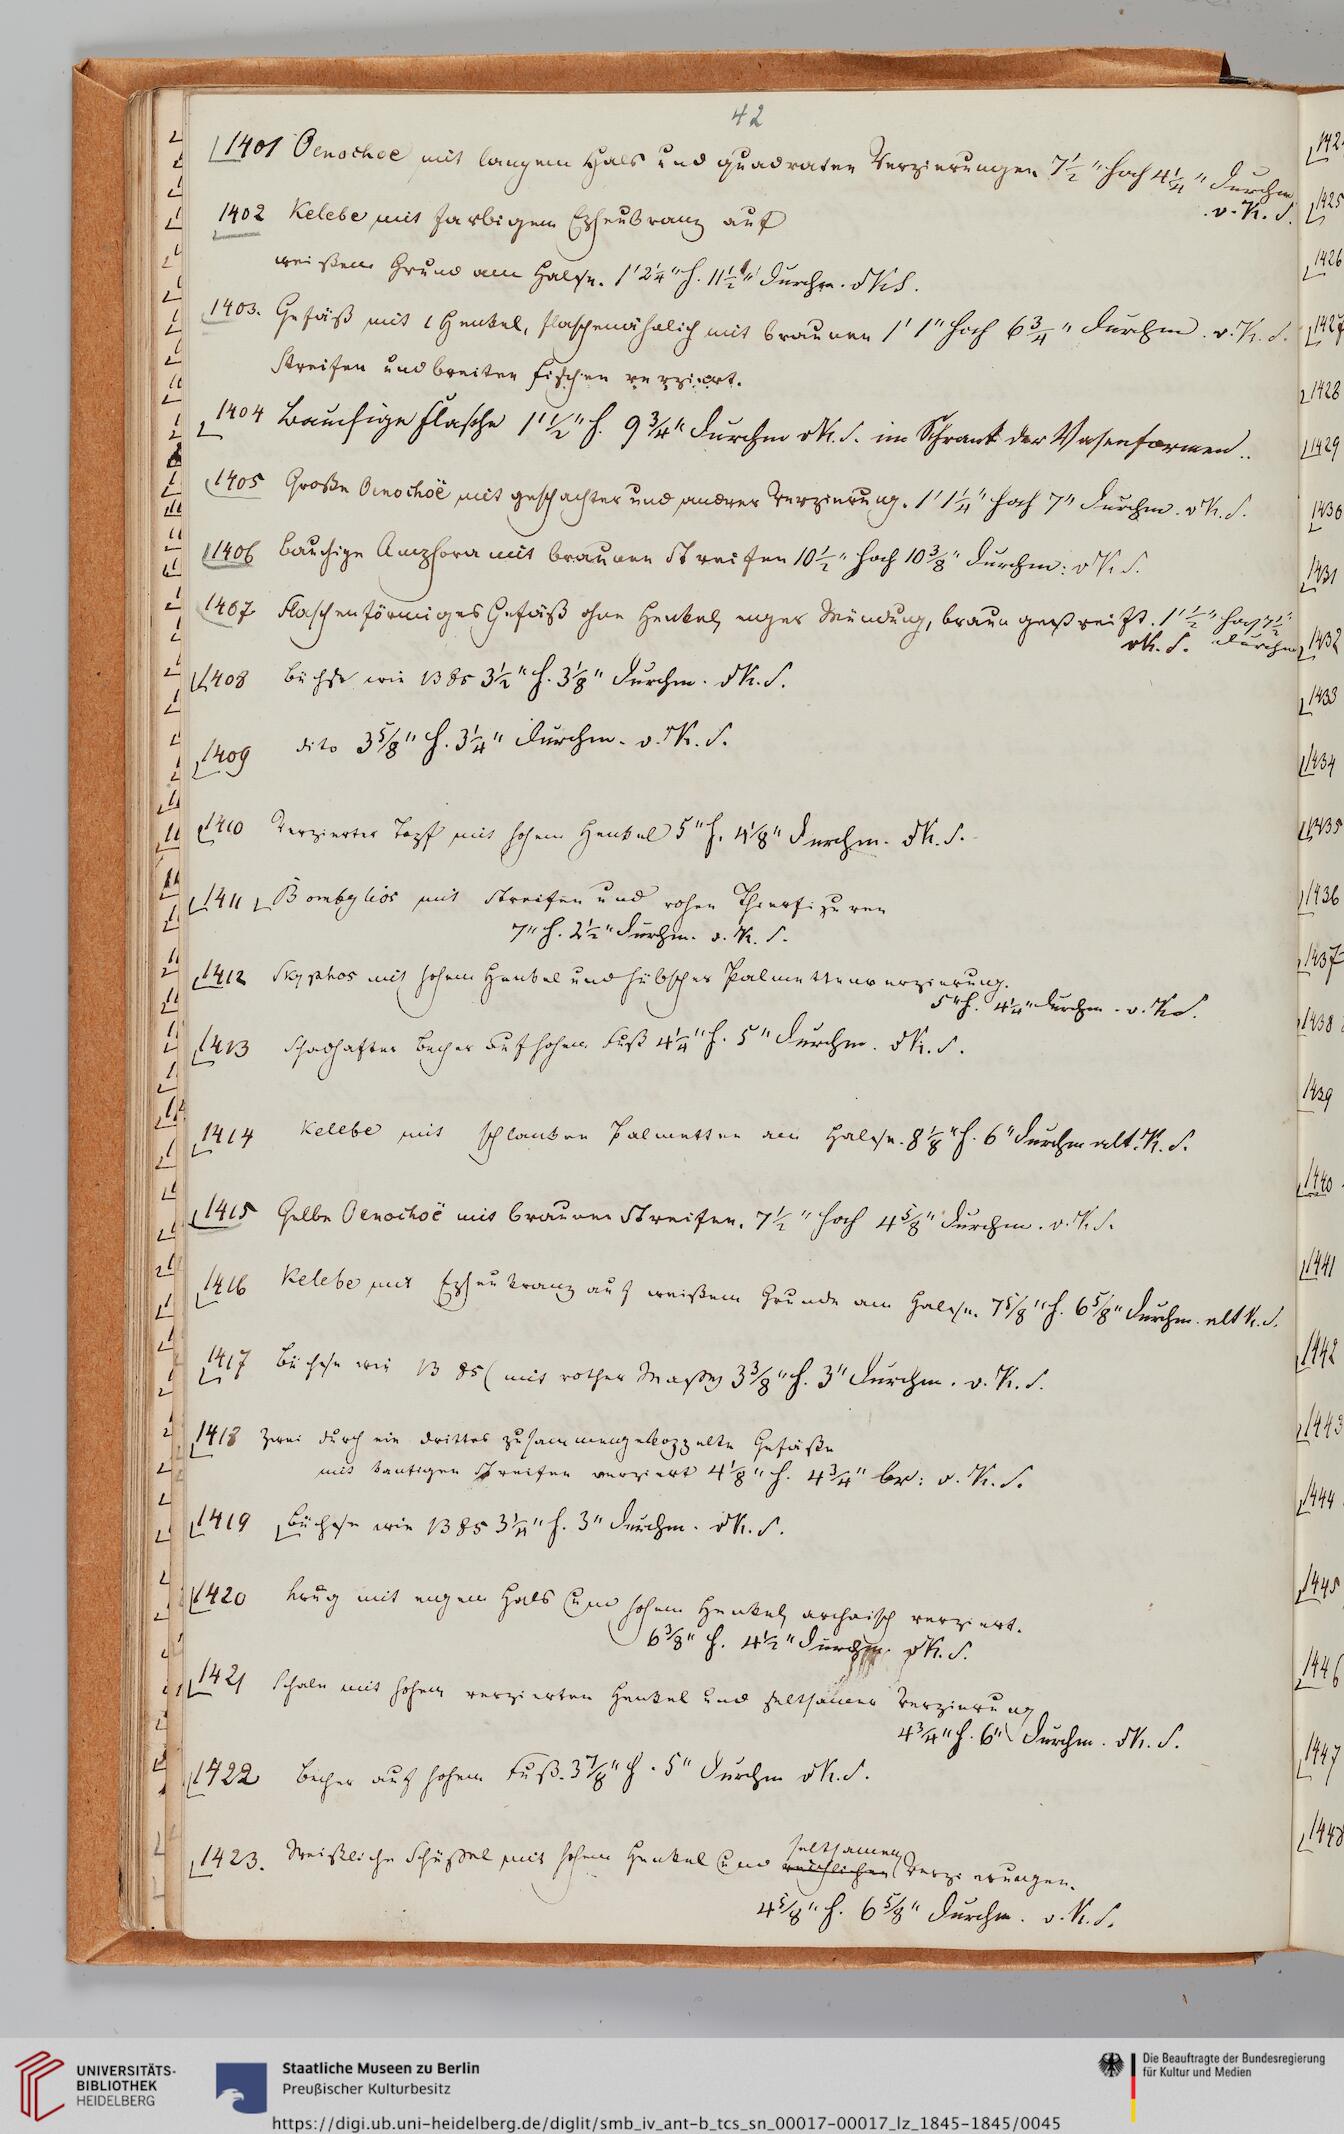 42
1401 Oenochoe mit langem Hals und quadraten Verzierungen 7½" hoch 4¼" Durchm
v. K. S.
1402 Kelebe mit farbigem Epheukranz auf
weißem Grund am Halse. 1' 2¼" h. 11½" Durchm. v K S.
1403. Gefäß mit 1 Henkel, flaschenähnlich mit braunen 1' 1" hoch 6¾" Durchm. v. K. S.
Streifen und breiten Fischen verziert.
1404 Bauchige Flasche 1' ½" h. 9¾" Durchm v K. S. im Schrank der Vasenformen..
1405 Große Oenochoë mit geschachter und andrer Verzierung. 1' 1¼" hoch 7" Durchm. v K. S.
1406 Bauchige Amphora mit braunen Streifen 10½" hoch 10⅜" Durchm: v K. S.
1407 Flaschenförmiges Gefäß ohne Henkel, enger Mündung, braun gestreift. 1' ½" hoch 7½"
v K. S. Durchm
1408 Büchse wie 1385 3½" h. 3⅛" Durchm. v K. S.
1409 dito 3⅝" h. 3¼" Durchm. v. K. S.
1410 Verzierter Topf mit hohem Henkel 5" h. 4⅛" Durchm. v K. S.
1411 Bombylios mit Streifen und rohen Thierfiguren
7" h. 2½" Durchm. v. K. S.
1412 Skyphos mit hohem Henkel und hübscher Palmettenverzierung.
5" h. 4¼" Durchm. v. K S.
1413 Schadhafter Becher auf hohem Fuß 4¼" h. 5" Durchm. v K. S.
1414 Kelebe mit schlanken Palmetten am Halse. 8⅛" h. 6" Durchm alt. K. S.
1415 Gelbe Oenochoë mit braunen Streifen. 7½" hoch 4⅝" Durchm. v. K. S.
1416 Kelebe mit Epheukranz auf weißem Grunde am Halse. 7⅝" h. 6⅝" Durchm. alt K. S.
1417 Büchse wie 1385 (mit rother Masse) 3⅜" h. 3" Durchm. v. K. S.
1418 Zwei durch ein drittes zusammengekoppelte Gefäße
mit kantigen Streifen verziert 4⅛" h. 4¾" br: v. K. S.
1419 Büchse wie 1385 3¼" h. 3" Durchm. v K. S.
1420 Krug mit engem Hals und hohem Henkel, archaisch verziert.
6⅜" h. 4½" Durchm. v K. S.
1421 Schale mit hohem verzierten Henkel und seltsamer Verzierung
4¾" h. 6" Durchm. v K. S.
1422 Becher auf hohem Fuß. 3⅞" h. 5" Durchm v K. S.
seltsamen
1423. Weißliche Schüssel mit hohem Henkel und Verzierungen.
4⅝" h. 6⅝" Durchm. v. K. S.
1425
1426
1427
1428
1429
1430
1431
1432
1433
1434
1435
1436
1437
1438
1439
1440
1441
1442
1443
1444
1445
1446
1447
1448
UNIVERSITÄTS-
BIBLIOTHEK
HEIDELBERG
Staatliche Museen zu Berlin
Preußischer Kulturbesitz
Die Beauftragte der Bundesregierung
für Kultur und Medien
https://digi.ub.uni-heidelberg.de/diglit/smb_iv_ant-b_tcs_sn_00017-00017_lz_1845-1845/0045